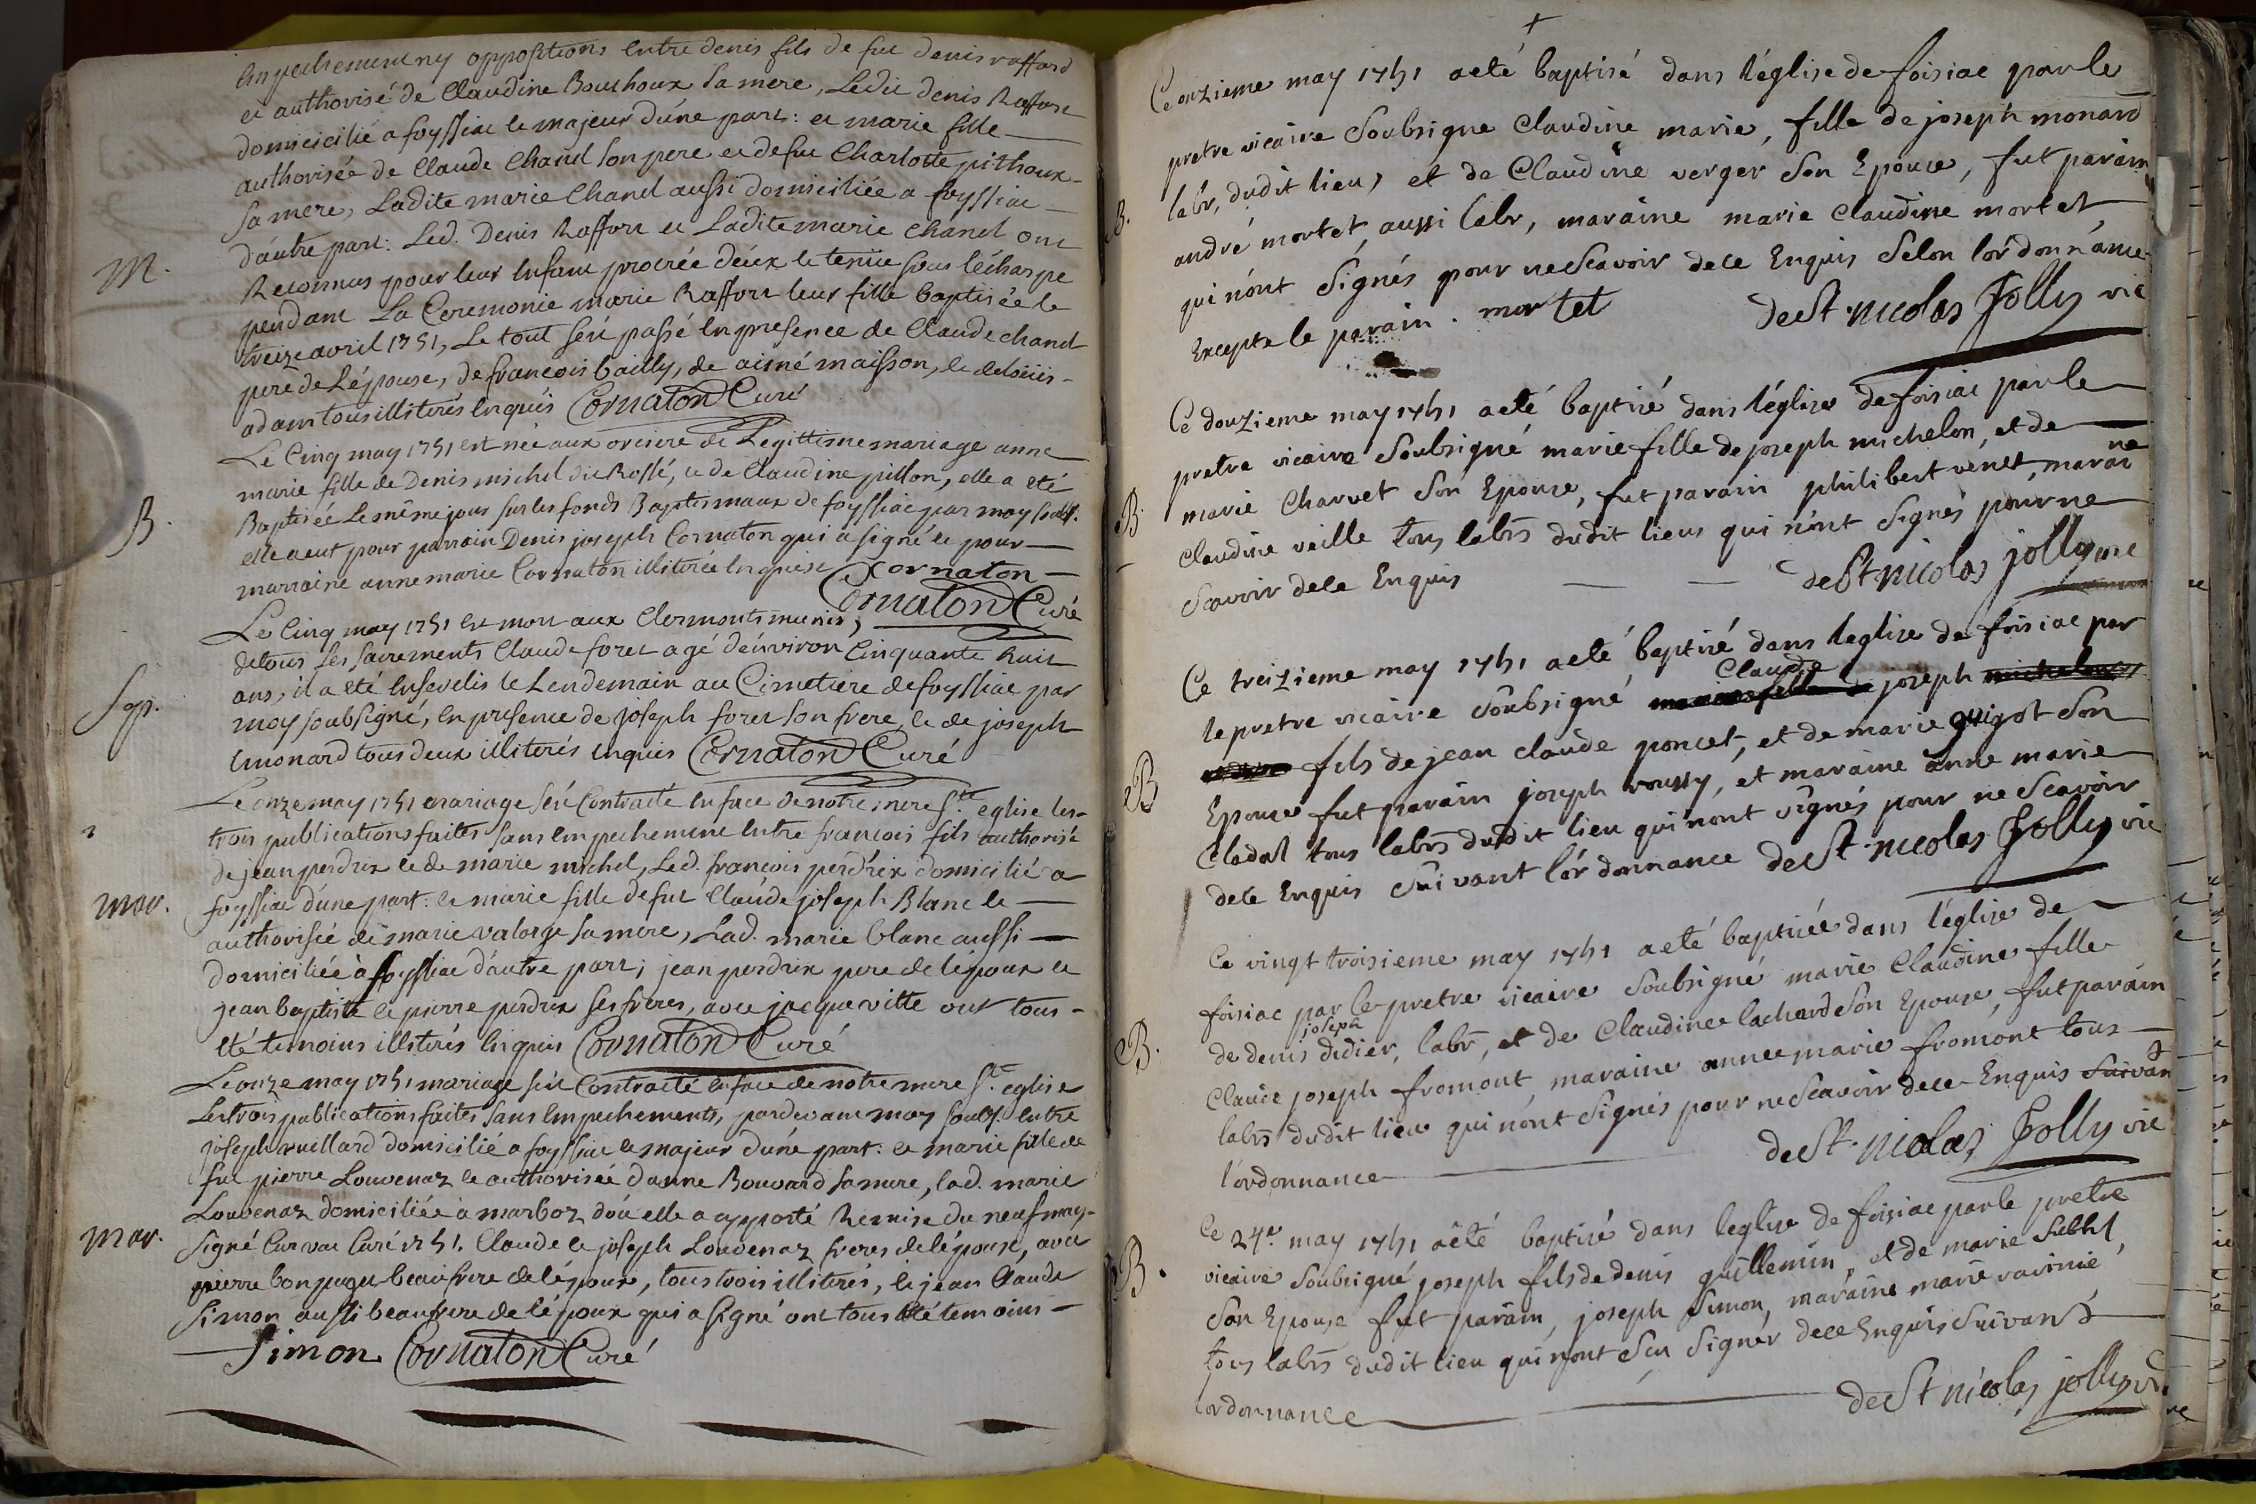 Empechement ny oppositions entre denis fils de feu denis raffard
et authorisé de Claudine Bouthoux sa mere, Ledit denis Raffort
domicicilié a foyssiac le majeur d'une part: et marie fille
authorisée de Claude Chanel son pere et de feu Charlotte pithoux
sa mere, Ladite marie Chanel aussi domiciliée a foyssiac
d'autre part: Led. Denis Raffort et Ladite marie Chanel ont
M.
Reconnus pour leur Enfant procréé d'eux et tenüe sous l'écharpe
pendant La Ceremonie marie Raffort leur fille baptisée le
treize avril 1751, Le tout s'est passé En presence de Claude chanel
pere de L'épouse, de francois bailly, de aimé maisson, et de loüis
adam tous illiterés Enquis Cornaton Curé
Le Cinq may 1751 est née aux orcière de Legittime mariage anne
marie fille de Denis michel dit Rossé, et de Claudine pillon, elle a été
B.
Baptisée Le même jour sur les fonds Baptismaux de foyssiac par moy soubs.
elle a eut pour parrain Denis joseph Cornaton qui a signé et pour
marraine anne marie Cornaton illiterée Enquise Cornaton
Cornaton Curé
Le Cinq may 1751 est mort aux Clermonts munis,
de tous Les sacrements Claude foret agé d'environ Cinquante huit
Sep.
ans, il a été Ensevelis le Lendemain au Cimetiere de foyssiac par
moy soubsigné, En presence de Joseph foret son frere, et de joseph
monard tous deux illiterés Enquis Cornaton Curé
Le onze may 1751 mariage s'est Contracté En face de notre mere Ste eglise les
trois publications faites sans Empechement Entre francois fils authorisé
de jean perdrix et de marie michel, Led. françois perdrix domicilié a
mar.
foyssiac d'une part: et marie fille de feu Claude joseph Blanc et
authorisée de marie valorge sa mere, Lad. marie blanc aussi
domiciliée à foyssiac d'autre part; jean perdrix pere de l'époux et
jean baptiste et pierre perdrix ses freres, avec jacque vitte ont tous
été temoins illiterés Enquis Cornaton Curé
Le onze may 1751 mariage s'est Contracté En face de notre mere Ste eglise
Les trois publications faites sans Empechements, pardevant moy soubs. Entre
joseph vuillard domicilié a foyssiac le majeur d'une part: et marie fille de
feu pierre Louvenaz et authorisée d'anne Bouvard sa mere, lad. marie
Louvenaz domiciliée à marboz d'où elle a apporté Remise du neuf may
mar.
signé Curvat Curé 1751. Claude et joseph Louvenaz freres de l'épouse, avec
pierre bonpuget beaufrere de l'époux, tous trois illiterés, et jean Claude
Simon aussi beaufrere de l'époux qui a signé ont tous été temoins
Simon Cornaton Curé
Ce onzieme may 1751 a eté baptisé dans l'église de foisiac par le
pretre vicaire soubsigne Claudine marie, fille de joseph monard
B.
labr, dudit lieu, et de Claudine verger son Epouse, fut parain
andré mortet, aussi labr, maraine marie claudine mortet
qui n'ont signés pour ne scavoir de ce Enquis selon l'ordonnance
Excepte le parain. mortet de St nicolas Jolly vic
Ce douzieme may 1751 a eté baptisé dans l'église de foisiac par le
pretre vicaire soubsigné marie fille de joseph michelon, et de
B
marie Charvet son Epouse, fut parain philibert venet, maraine
claudine veille tous labrs dudit lieu qui n'ont signés pour ne
Scavoir de ce Enquis de St nicolas jolly vic
Ce treizieme may 1751 a eté baptisé dans leglise de foisiac par
Claude
le pretre vicaire soubsigné marie fille de joseph michelon
B
fils de jean claude poncet, et de marie guigot son
Epouse fut parain joseph roussy, et maraine anne marie
Cladal tous labrs dudit lieu qui n'ont signés pour ne Scavoir
de ce Enquis suivant l'ordonnance de St. nicolas Jolly vic
Ce vingt troisieme may 1751 a eté baptisée dans l'église de
foisiac par le pretre vicaire soubsigné marie Claudine fille
joseph
B.
de denis didier, labr, et de Claudine lachard son Epouse, fut parain
Claude joseph fromont, maraine anne marie fromont tous
labrs dudit lieu qui n'ont signés pour ne Scavoir de ce Enquis suivant
l'ordonnance de St. nicolas Jolly vic
Ce 24e may 1751 a eté baptisé dans leglise de foisiac par le pretre
B.
vicaire soubsigné joseph fils de denis guillemin, et de marie
son Epouse fut parain, joseph Simon, maraine marie
tous labrs dudit lieu qui n'ont sçu signer de ce Enquis suivant
l'ordonnance de St nicolas jolly vic